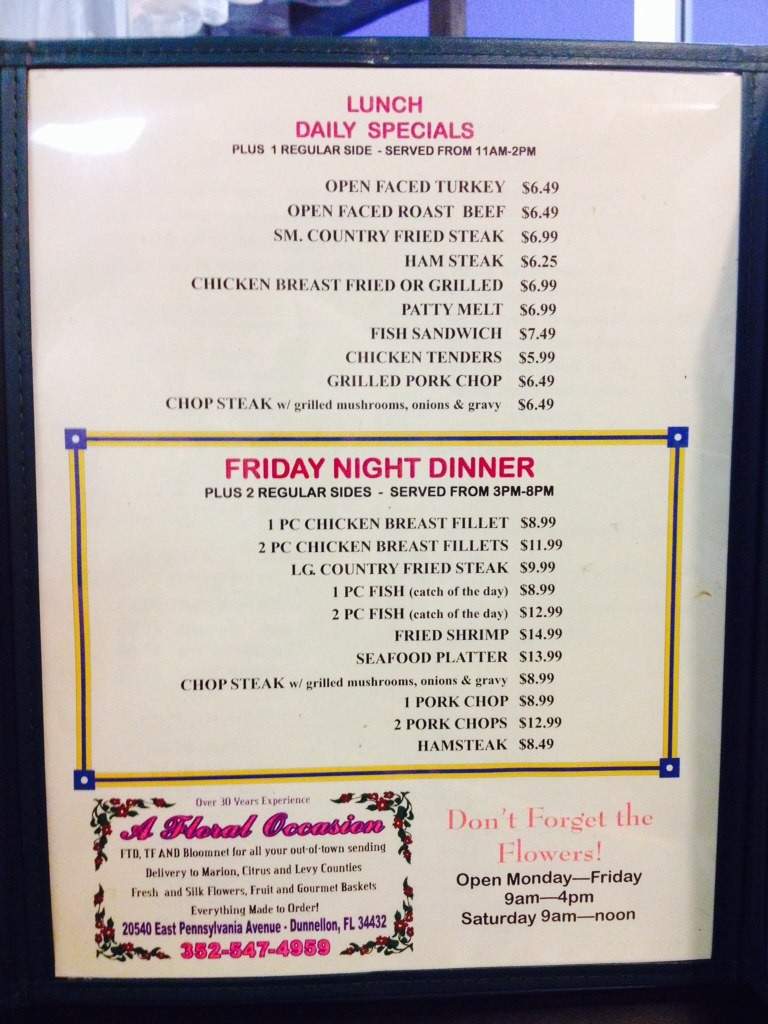 LUNCH
DAILY SPECIALS
PLUS 1 REGULAR SIDE - SERVED FROM 11AM-2PM
OPEN FACED TURKEY $6.49
OPEN FACED ROAST BEEF $6.49
SM. COUNTRY FRIED STEAK $6.99
HAM STEAK $6.25
CHICKEN BREAST FRIED OR GRILLED $6.99
PATTY MELT $6.99
FISH SANDWICH $7.49
CHICKEN TENDERS $5.99
GRILLED PORK CHOP $6.49
CHOP STEAK w/ grilled mushrooms, onions & gravy $6.49
FRIDAY NIGHT DINNER
PLUS 2 REGULAR SIDES - SERVED FROM 3PM-8PM
1 PC CHICKEN BREAST FILLET $8.99
2 PC CHICKEN BREAST FILLETS $11.99
LG. COUNTRY FRIED STEAK $9.99
1 PC FISH (catch of the day) $8.99
2 PC FISH (catch of the day) $12.99
FRIED SHRIMP $14.99
SEAFOOD PLATTER $13.99
CHOP STEAK w/ grilled mushrooms, onions & gravy $8.99
1 PORK CHOP $8.99
2 PORK CHOPS $12.99
HAMSTEAK $8.49
Over 30 Years Experience
A Floral Occasion
FTD, TF AND Bloomnet for all your out-of-town sending
Delivery to Marion, Citrus and Levy Counties
Fresh and Silk Flowers, Fruit and Gourmet Baskets
Everything Made to Order!
20540 East Pennsylvania Avenue - Dunnellon, FL 34432
352-547-4959
Don't Forget the
Flowers!
Open Monday—Friday
9am—4pm
Saturday 9am—noon